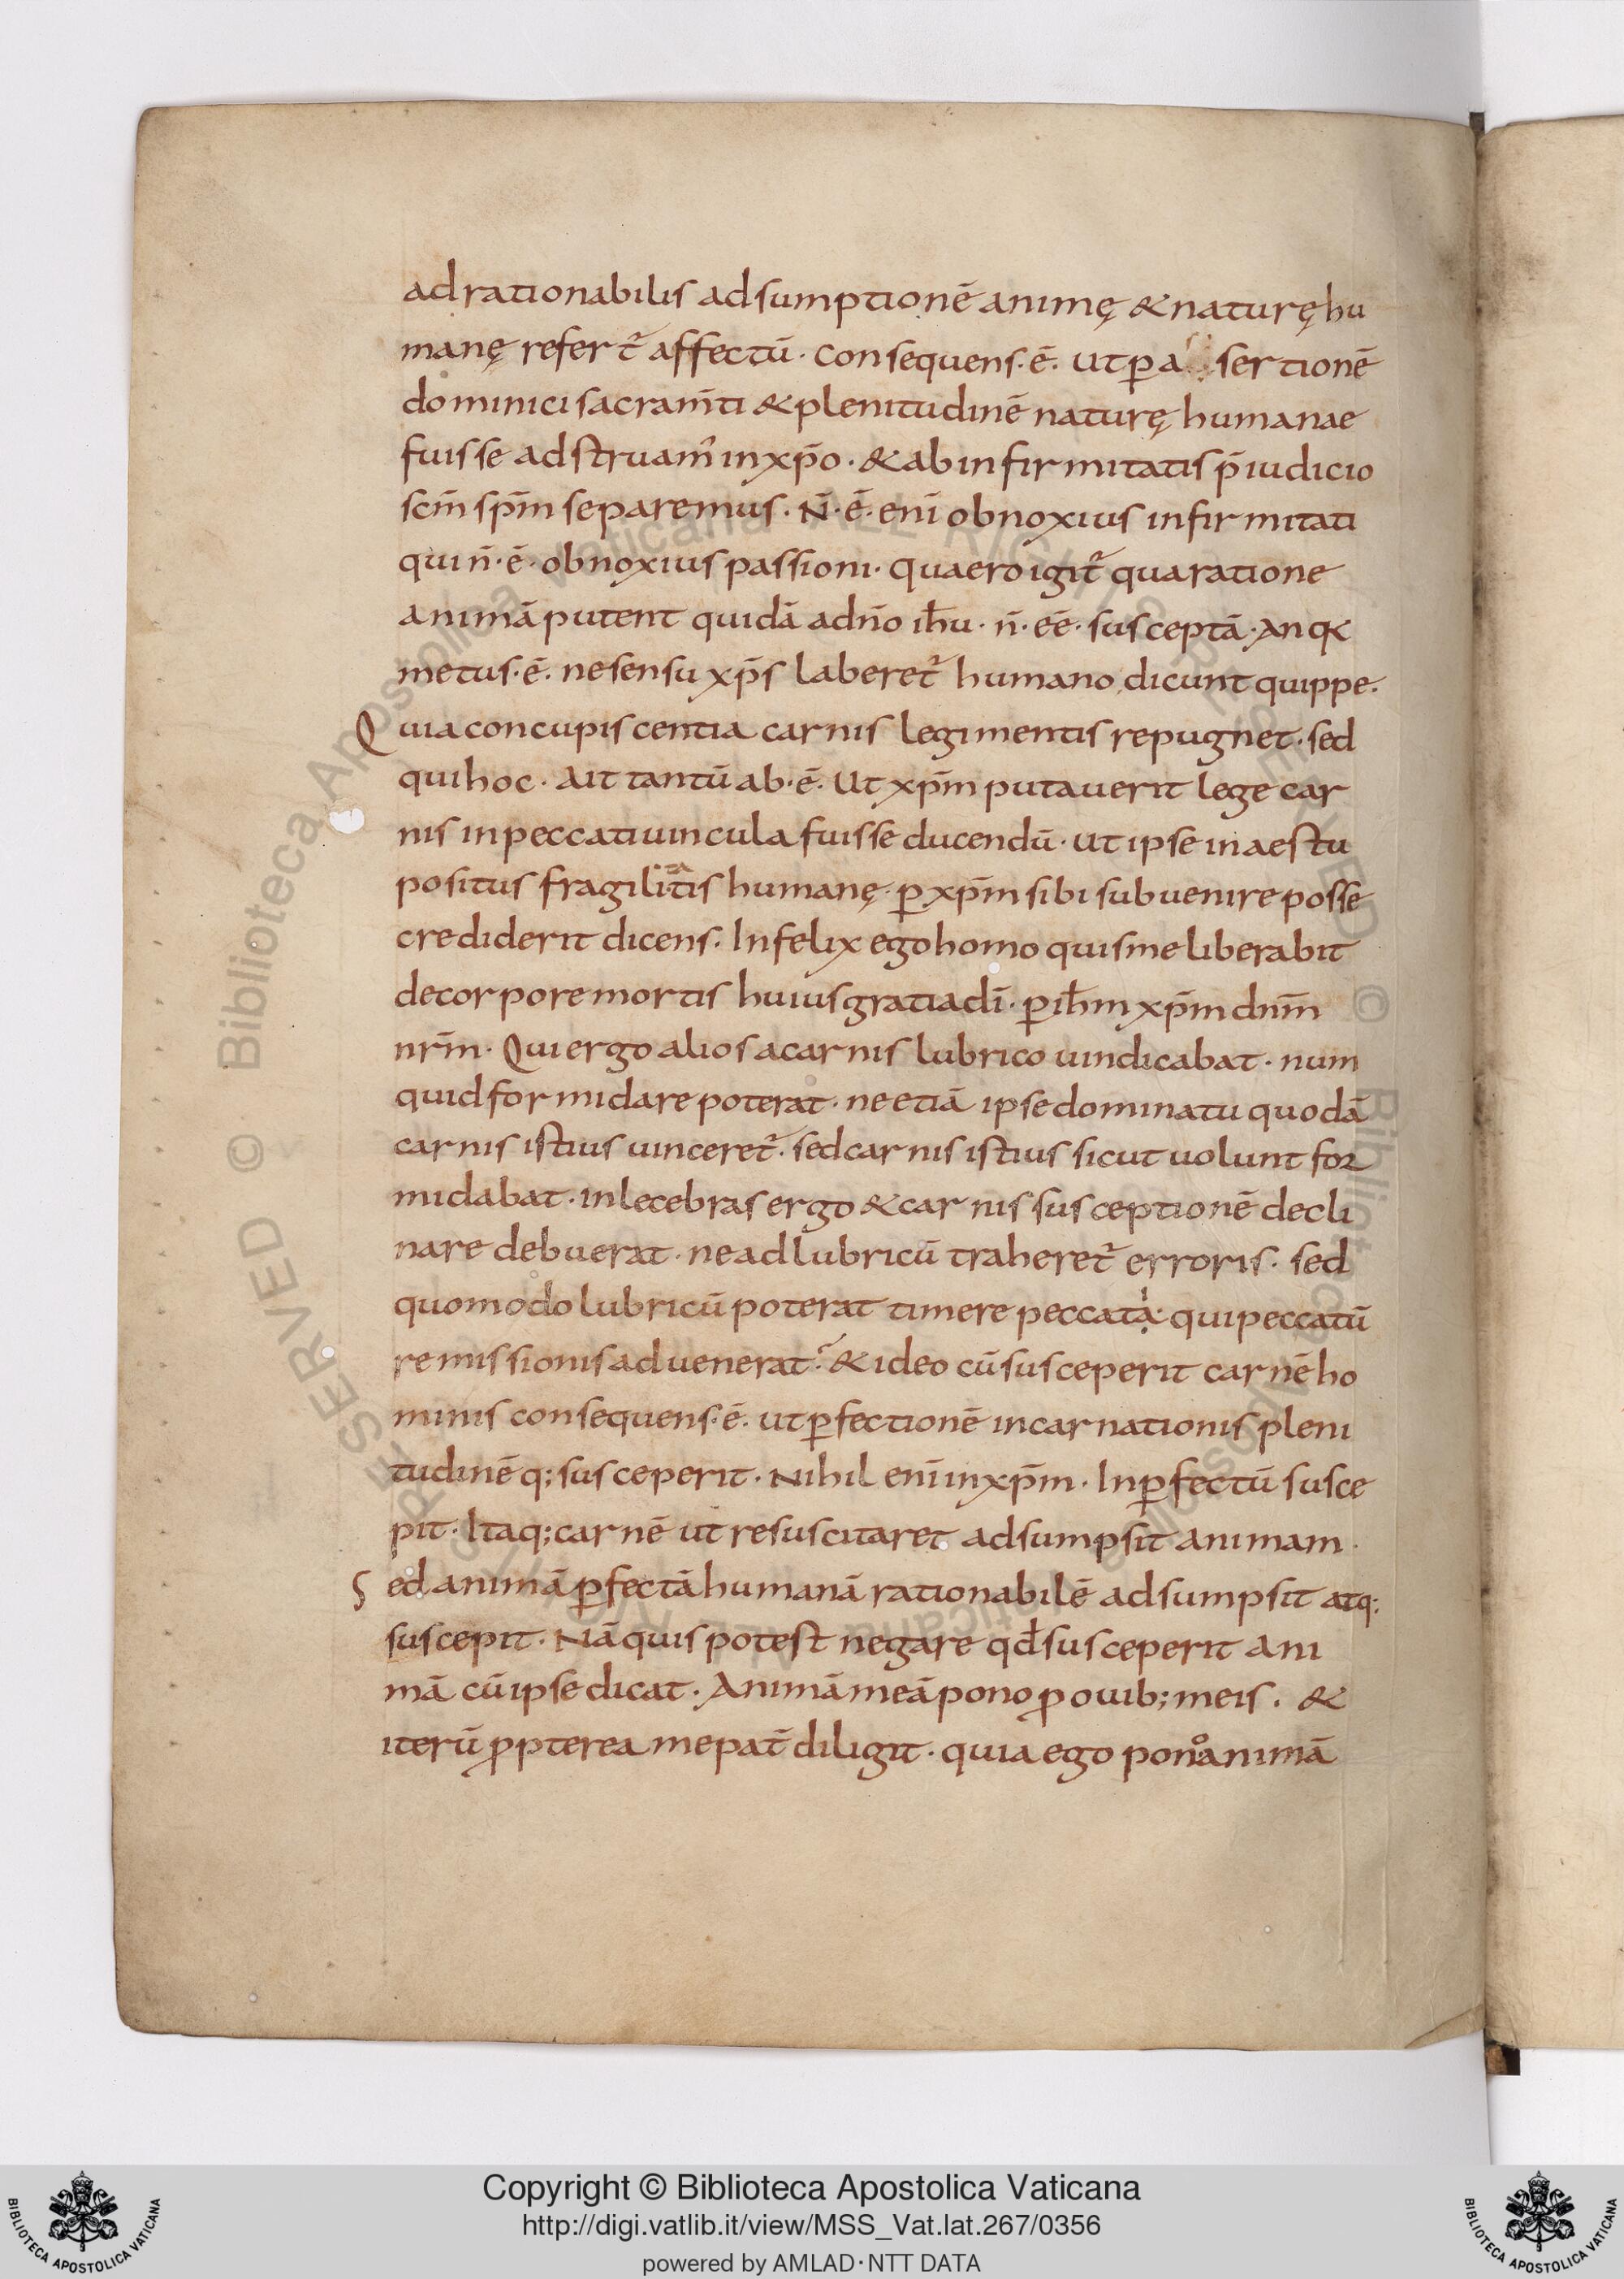 ad rationabilis adsumptionē animę & naturę hu
manę refert̃ affectū · consequens · ē · ut p̱ a sertionē
dominici sacram̄ti & plenitudinē naturę humanae
fuisse adstruam᾿ in xp̄o · & ab infirmitatis p̄iudicio
scm̄ sp̄m separemus · N̄ · ē · eni̅ obnoxius infirmitati
qui n̄ · ē · obnoxius passioni · quaero igit̃ qua ratione
animā putent quidā adn̄o ih̄u · n̄ · eē · susceptā · An q&
metus · ē · ne sensu xp̄s laberet̃ humano dicunt quippe ·
Quia concupiscentia carnis legi mentis repugnet · sed
qui hoc · Ait tantū ab · ē · Ut xp̄m putauerit lege car
nis in peccati uincula fuisse ducendū · ut ipse in aestu
positus fragilitatis humanę · p̱ xp̄m sibi subuenire posse
crediderit dicens · Infelix ego homo quis me liberabit
de corpore mortis huius gratia dī · p̱ ih̄m xp̄m dn̄m
nr̄m · Qui ergo alios a carnis lubrico uindicabat · num
quid formidare poterat · ne etiā ipse dominatu quodā
carnis istius uinceret̃ · sed carnis istius sicut uolunt for
midabat · inlecebras ergo & carnis susceptionē decli
nare debuerat · ne ad lubricū traheret̃ erroris · sed
quomodo lubricū poterat timere peccati · qui peccatū
remissionis aduenerat · & ideo cū susceperit carnē ho
minis consequens · ē · ut p̱fectionē incarnationis pleni
tudinē q; susceperit · Nihil eni̅ in xp̄m · Inp̱fectū susce
pit · Itaq; carnē ut resuscitaret adsumpsit animam ·
Sed animā p̱fectā humanā rationabilē adsumpsit atq;
suscepit · Nā quis potest negare qd̄ susceperit ani
mā cū ipse dicat · Animā meā pono ꝓ ouib; meis · &
iterū ꝓpterea me pat̄ diligit · quia ego pono animā
Copyright © Biblioteca Apostolica Vaticana
http://digi.vatlib.it/view/MSS_Vat.lat.267/0356
powered by AMLAD · NTT DATA
BIBLIOTECA APOSTOLICA VATICANA
BIBLIOTECA APOSTOLICA VATICANA